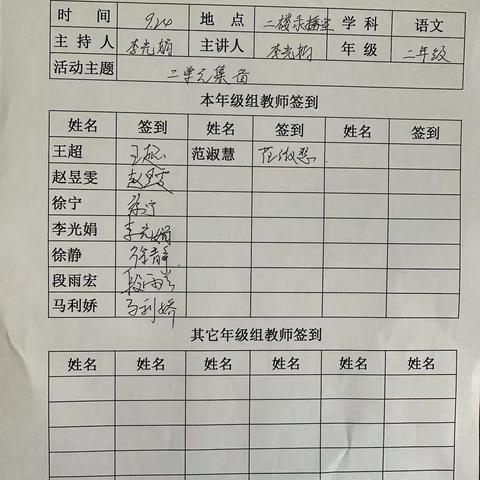 时 间 9.24 地 点 二楼录播室 学 科 语文
主 持 人 李光娟 主讲人 李光娟 年 级 二年级
活动主题 二单元集备
本年级组教师签到
姓名 签到 姓名 签到 姓名 签到
王超 王超 范淑慧 范淑慧
赵昱雯 赵昱雯
徐宁 徐宁
李光娟 李光娟
徐静 徐静
段雨宏 段雨宏
马利娇 马利娇
其它年级组教师签到
姓名 姓名 姓名 姓名 姓名 姓名